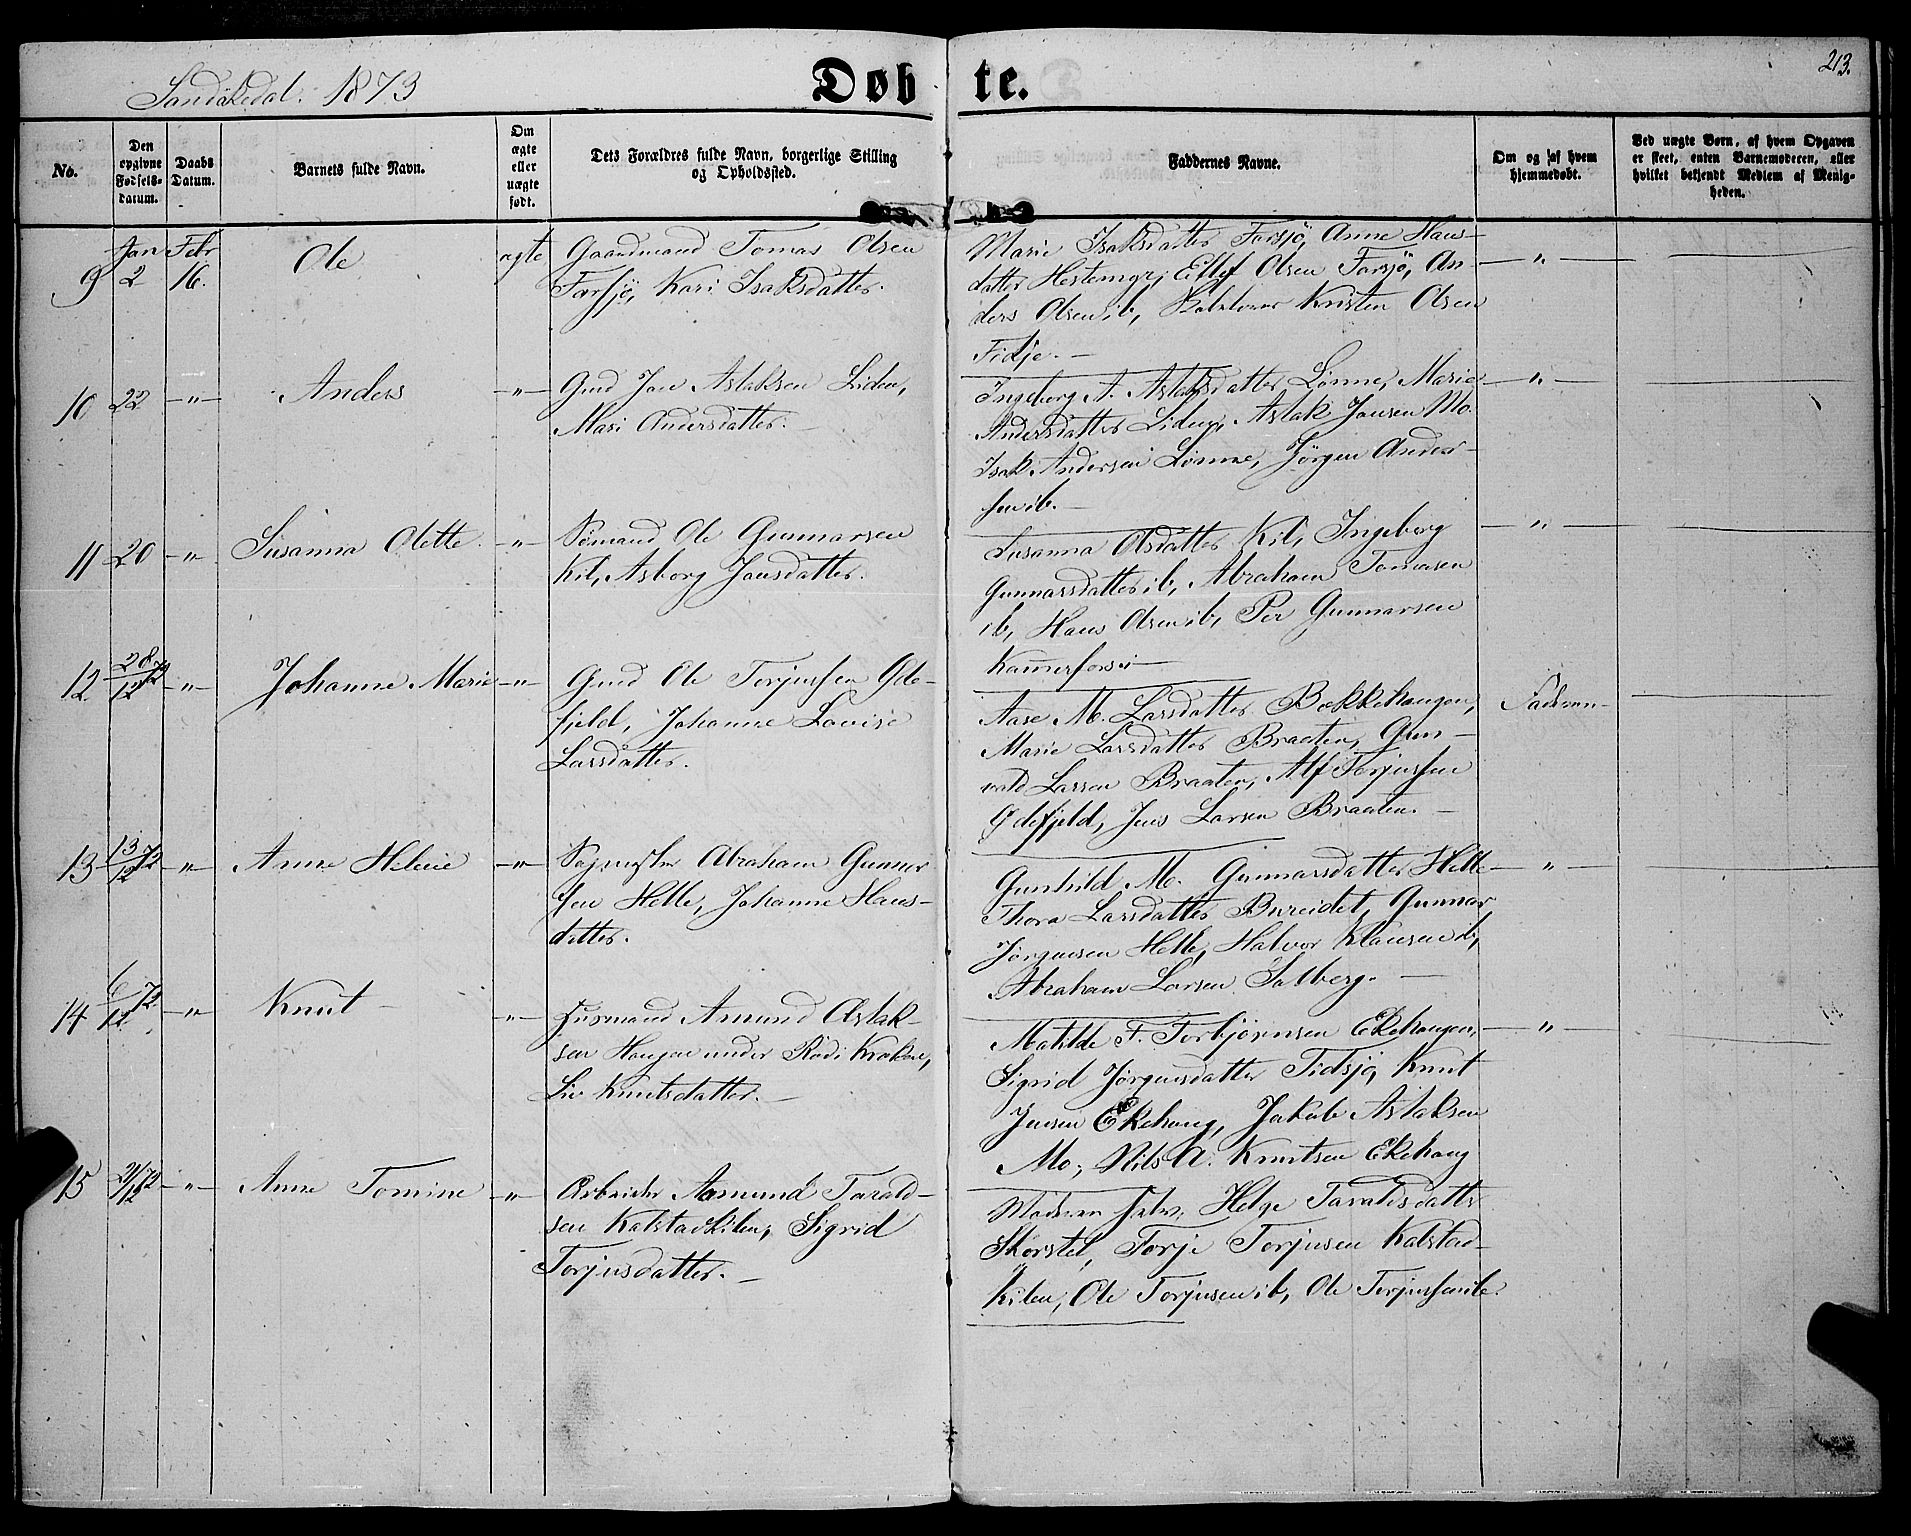 213.
Sandøkedal. 1873
Døbte.
No.
Den opgivne Fødsels-datum.
Daabs Datum.
Barnets fulde Navn.
Om ægte eller uægte født.
Dets Forældres fulde Navn, borgerlige Stilling og Opholdssted.
Faddernes Navne.
Om og af hvem hjemmedøbt.
Ved uægte Børn, af hvem Opgaven er skeet, enten Barnemoderen, eller hvilket bekjendt Medlem af Menigheden.
9 Jan 2 Febr 16. Ole ægte
Gaardmand Tomas Olsen
Farsjø, Kari Isaksdatter.
Marie Isaksdatter Farsjø, Anne Hans-
datter Hestemyr, Ellef Olsen Farsjø, An-
ders Olsen ib, Kristen Olsen
Fidje. —
— " —
10 22 — " — Anders — " —
Gmd Jens Aslaksen Liden,
Mari Andersdatter. —
Ingeborg A. Aslaksdatter Lønne, Marie
Andersdatter Liden, Aslak Jensen Mo.
Isak Andersen Lønne, Jørgen Ander-
sen ib. —
— " —
11 20 — " — Susanna Olette — " —
Sømand Ole Gunnarsen
Kil, Asborg Jensdatter.
Susanna Olsdatter Kil, Ingeborg
Gunnarsdatter ib, Abraham Tomasen
ib, Hans Olsen ib, Per Gunnarsen
Kammerfors —
— " —
12 28/12 72 — " — Johanne Marie — " —
Gmd Ole Terjussen Øde-
fjeld, Johanne Lovise
Larsdatter.
Aase M. Larsdatter Bækkehaugen,
Marie Larsdatter Braaten, Gun-
vald Larsen Braaten, Alf Terjussen
Ødefjeld, Jens Larsen Braaten. —
Faderen
13 13/12 72 — " — Anne Helene — " —
Sagmester Abraham Gunnar
sen Helle, Johanne Hans-
datter.
Gunhild M. Gunnarsdatter Helle
Thora Larsdatter Bureidet, Gunnar
Jørgensen Helle, Halvor Klausen ib,
Abraham Larsen Solberg. —
— " —
14 6/12 72 — " — Knut — " —
Husmand Amund Aslak-
sen Haugen under Rødi Krokne,
Liv Knutsdatter. —
Matilde F. Torbjørnsen Ekehaugen,
Sigrid Jørgensdatter Tidsjø, Knut
Jensen Ekehaug, Jakob Aslaksen
Mo, Nils A. Knutsen Ekehaug
— " —
15 21/12 72 — " — Anne Tomine — " —
Arbeider Asmund Tarald-
sen Kalstadkilen, Sigrid
Terjusdatter. —
Moderen selv, Helge Taraldsdatter
Skorstøl, Terje Terjusen Kalstad-
kilen, Ole Terjusen ib, Ole Terjussen ib.